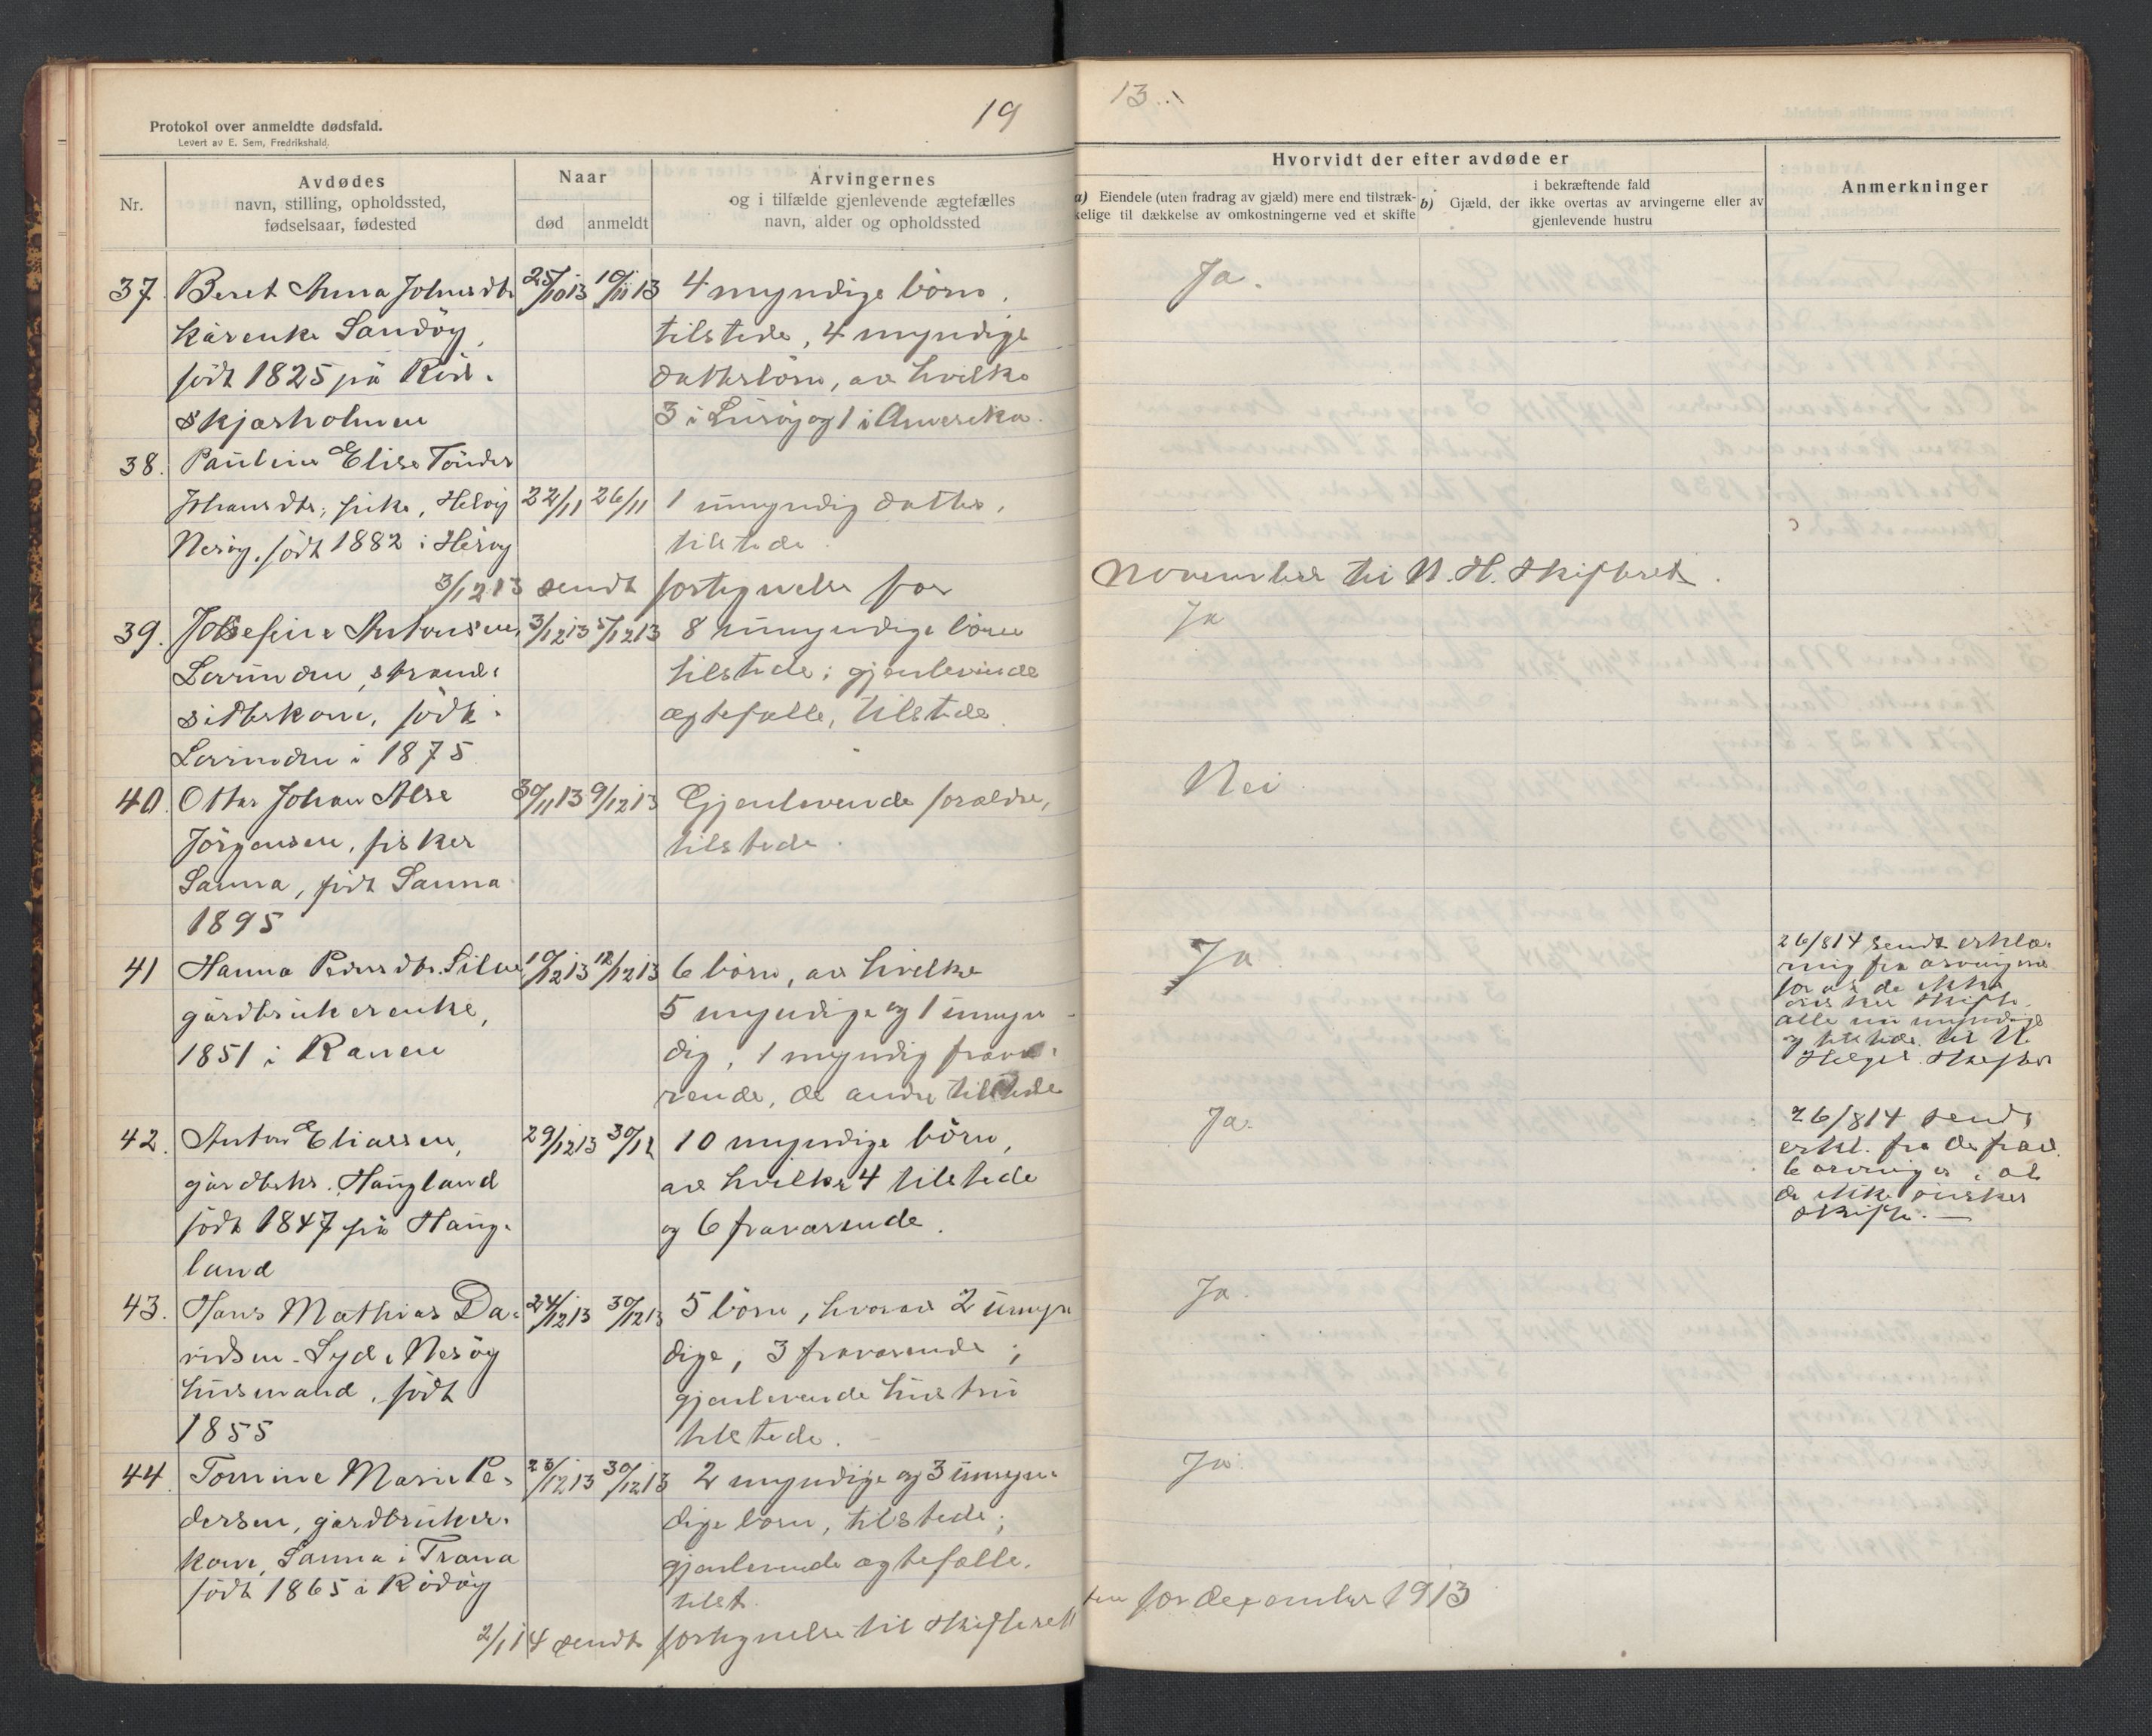 19
13
Protokol over anmeldte dødsfald.
Levert av E. Sem, Fredrikshald.
Nr.
Avdødes
navn, stilling, opholdssted,
fødselsaar, fødested
Naar
død
anmeldt
Arvingernes
og i tilfælde gjenlevende ægtefælles
navn, alder og opholdssted
Hvorvidt der efter avdøde er
a) Eiendele (uten fradrag av gjæld) mere end tilstræk-
kelige til dækkelse av omkostningerne ved et skifte
i bekræftende fald
b) Gjæld, der ikke overtas av arvingerne eller av
gjenlevende hustru
Anmerkninger
37. Beret Anna Johnsdtr 25/10 13 10/11 13 4 myndige börn, Ja.
kårenke Sandöy, tilstede, 4 myndige
födt 1825 på datterbörn, av hvilke
skjærholmen 3 i Luröy og 1 i Amerika.
38. Pauline Elise Tönder
Johansdtr, pike, 22/11 26/11 1 umyndig datter,
Nesöy, födt 1882 i Heröy tilstede.
3/12 13 sendt fortegnelse for november til N. H. skifteret.
39. Josefine Antonsen, 3/12 13 5/12 13 8 umyndige börn Ja
Lovunden, strand- tilstede; gjenlevende
sitterkone, födt i ægtefælle, tilstede.
Lovunden i 1875
40. Ottar Johan Alse 30/11 13 9/12 13 Gjenlevende forældre, Nei
Jörgensen, fisker tilstede.
Sanna, födt Sanna
1895
41 Hanna Pedersdtr. 10/12 13 12/12 13 6 börn, av hvilke Ja
gårdbrukerenke, 5 myndige og 1 umyn-
1851 i Ranen dig, 1 myndig fravæ-
rende, de andre tilstede
26/8 14 sendt erklæ-
ring fra arvingerne
for at de ikke
önsker skifte.
alle nu myndige
og tilstede til N.
Helgel. skifter
42. Anton Eliassen, 29/12 13 30/12 10 myndige börn, Ja.
gårdbrkr. Haugland av hvilke 4 tilstede
födt 1847 på Haug- og 6 fraværende.
land
26/8 14 sendt
erkl. fra de frav.
6 arvinger, at
de ikke önsker
skifte. —
43. Hans Mathias Da- 24/12 13 30/12 13 5 börn, hvorav 2 umyn Ja.
vidsen. Syd-Nesöy dige, 3 fraværende;
husmand, födt gjenlevende hustru
1855 tilstede.
44. Tomine Marie Pe- 23/12 13 30/12 13 2 myndige og 3 umyn- Ja.
dersen, gårdbruker- dige börn, tilstede;
kone, Sanna i Træna gjenlevende ægtefælle.
födt 1865 i Rödöy tilst.
2/1 14 sendt fortegnelse til skifterett
ten for december 1913